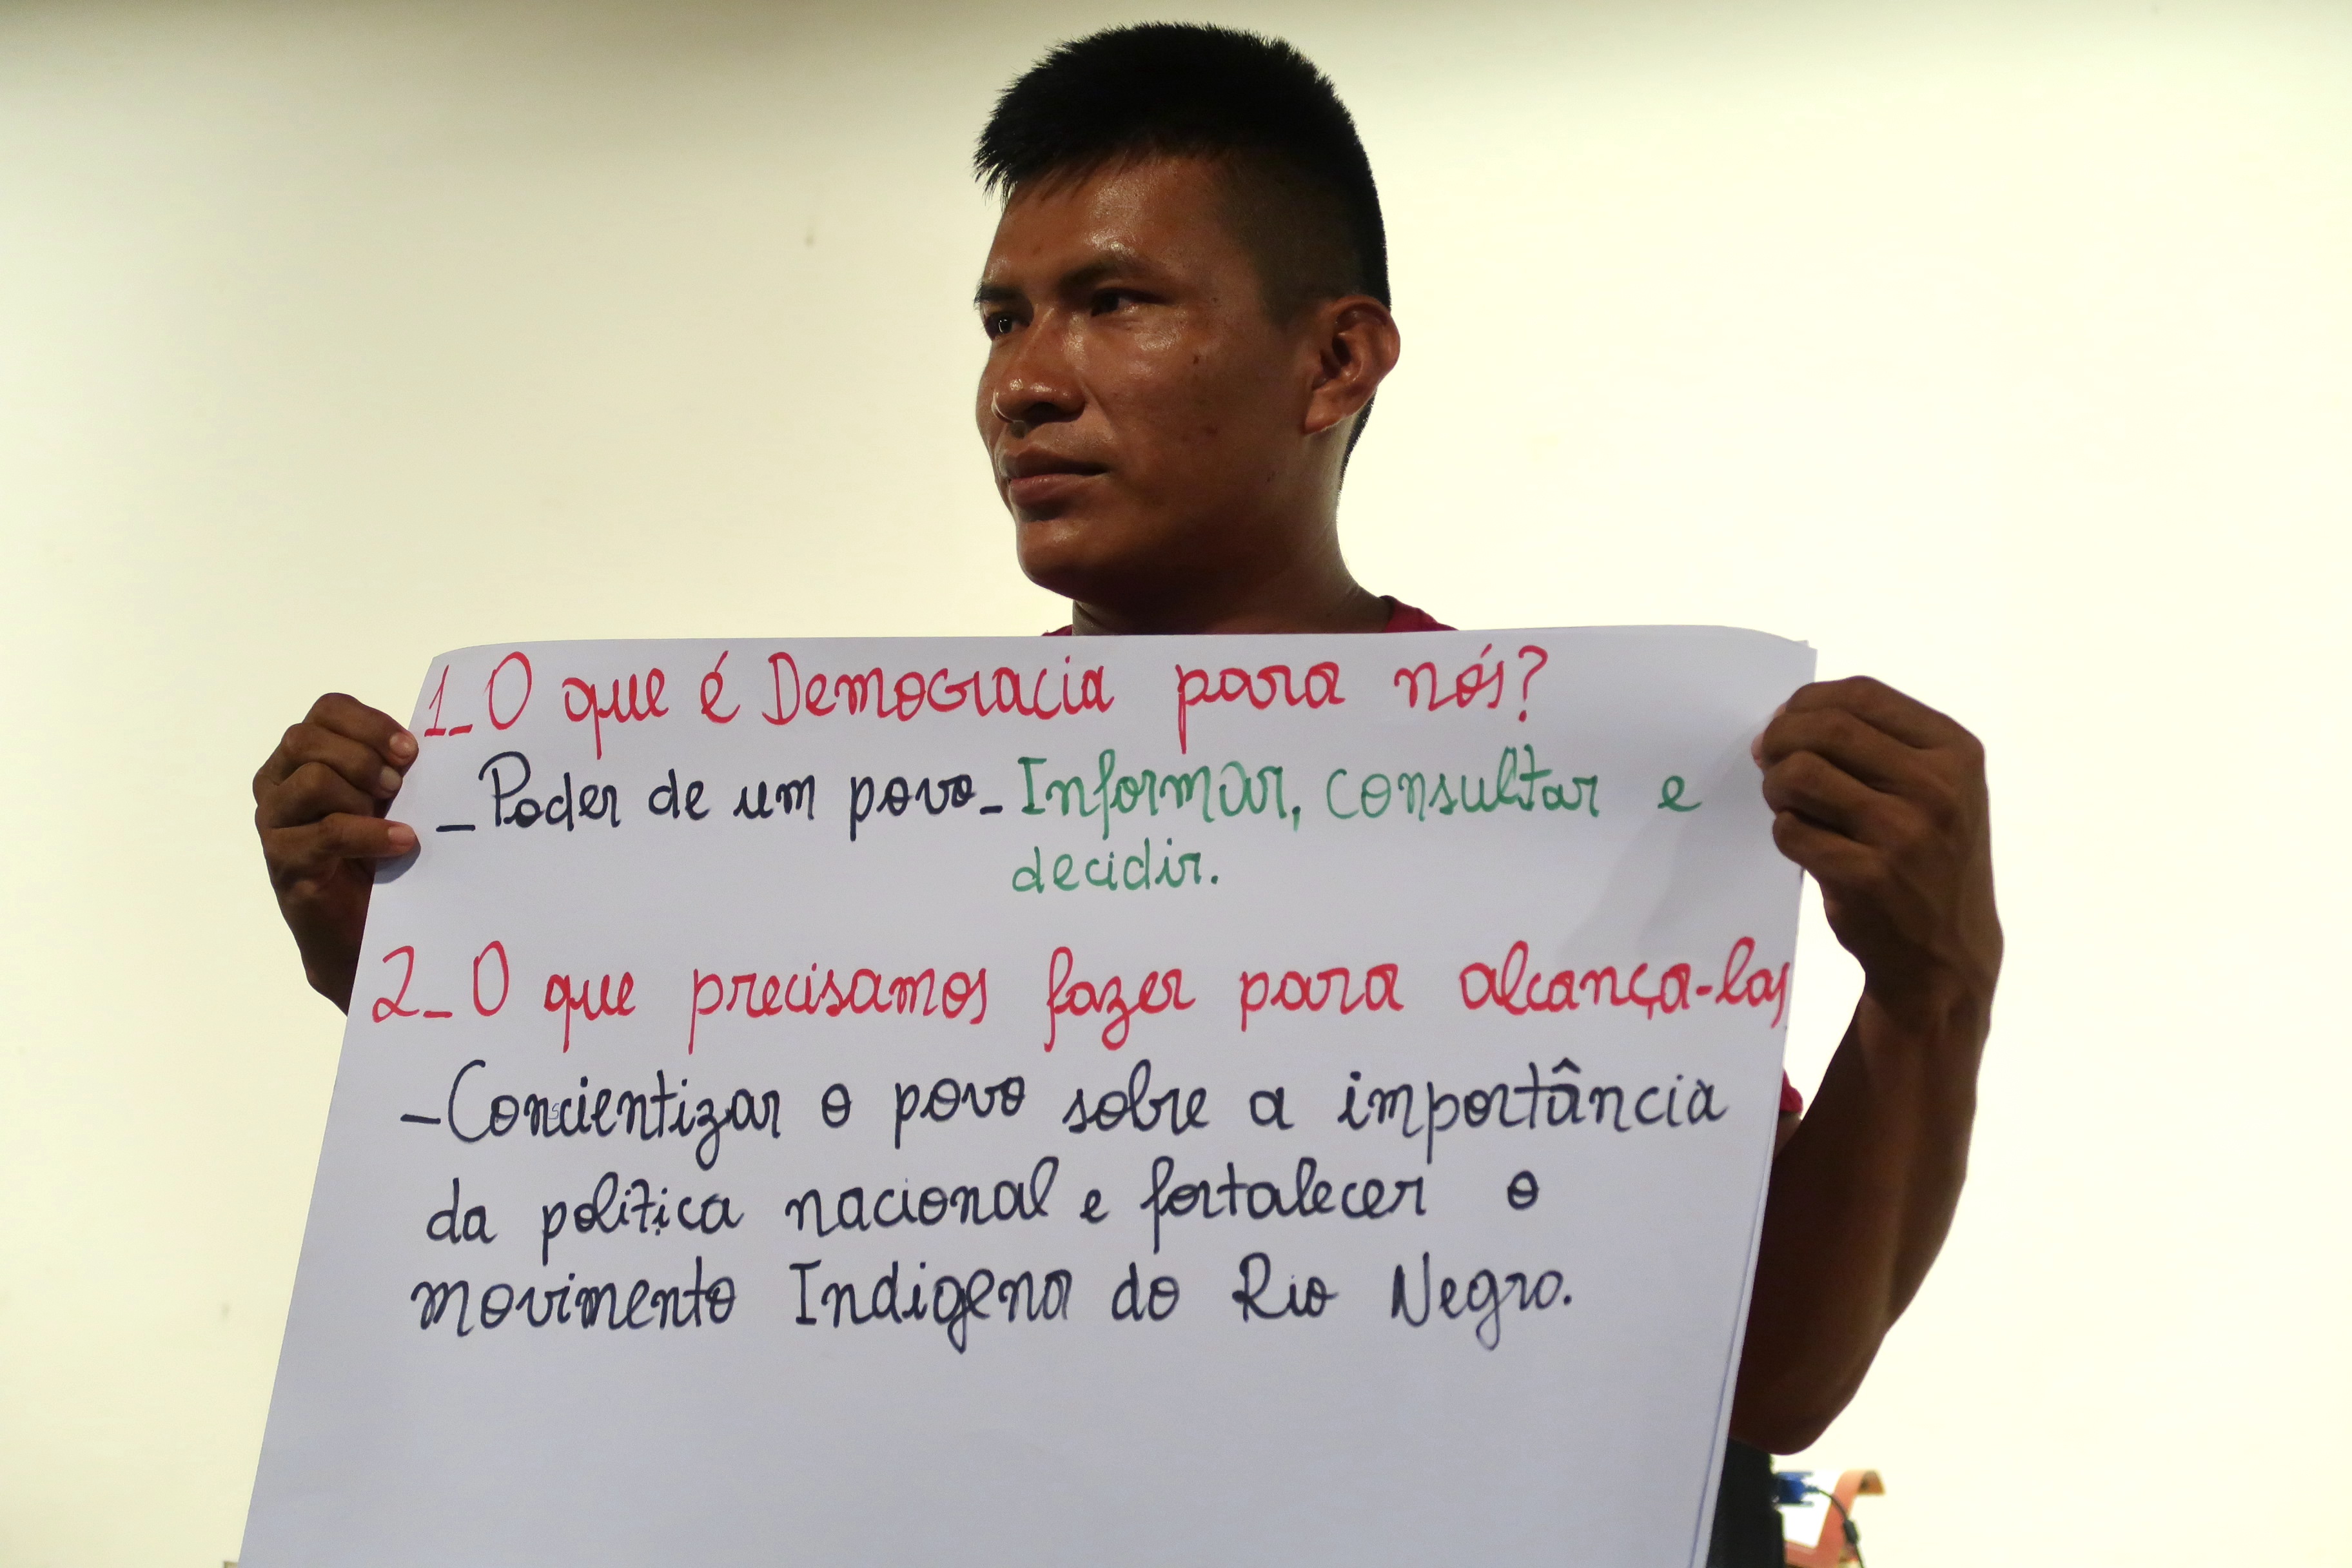 1_O que é Democracia para nós?
_Poder de um povo_Informar, consultar e
decidir.
2_O que precisamos fazer para alcançá-los
-Conscientizar o povo sobre a importância
da política nacional e fortalecer o
movimento Indigena do Rio Negro.